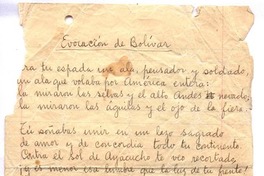 Evocación de Bolívar
era tu espada un ala, pensador y soldado,
un ala que volaba por América entera:
la miraron las selvas y el alto Andes nevado,
la miraron las águilas y el ojo de la fiera.
Tú soñabas unir en un lazo sagrado
de amor y de concordia todo tu Continente.
Contra el sol de Ayacucho te veo recortado,
y el menor esa lumbre que la luz de tu frente!